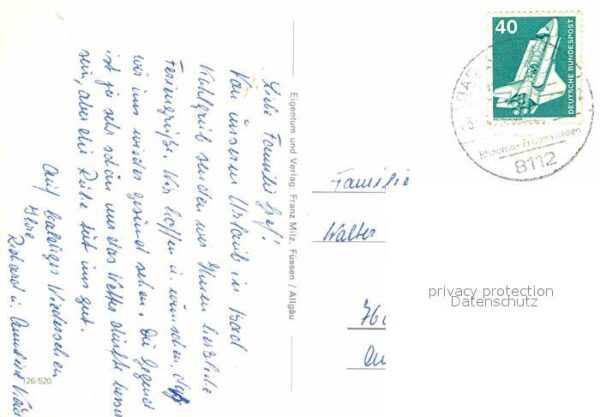 Liebe Familie Graf!
Von unserem Urlaub in Bad
Kohlgrub senden wir Ihnen herzliche
Feriengrüße. Wir hoffen u. wünschen, daß
wir uns wieder gesund sehen. Die Gegend
ist ja sehr schön nur das Wetter dürfte besser
sein, aber die Ruhe tut uns gut.
Auf baldiges Wiedersehen
Ihre
Richard u.
126/520
Eigentum und Verlag: Franz Milz, Füssen / Allgäu
40
DEUTSCHE BUNDESPOST
8112
Familie
Walter
privacy protection
Datenschutz